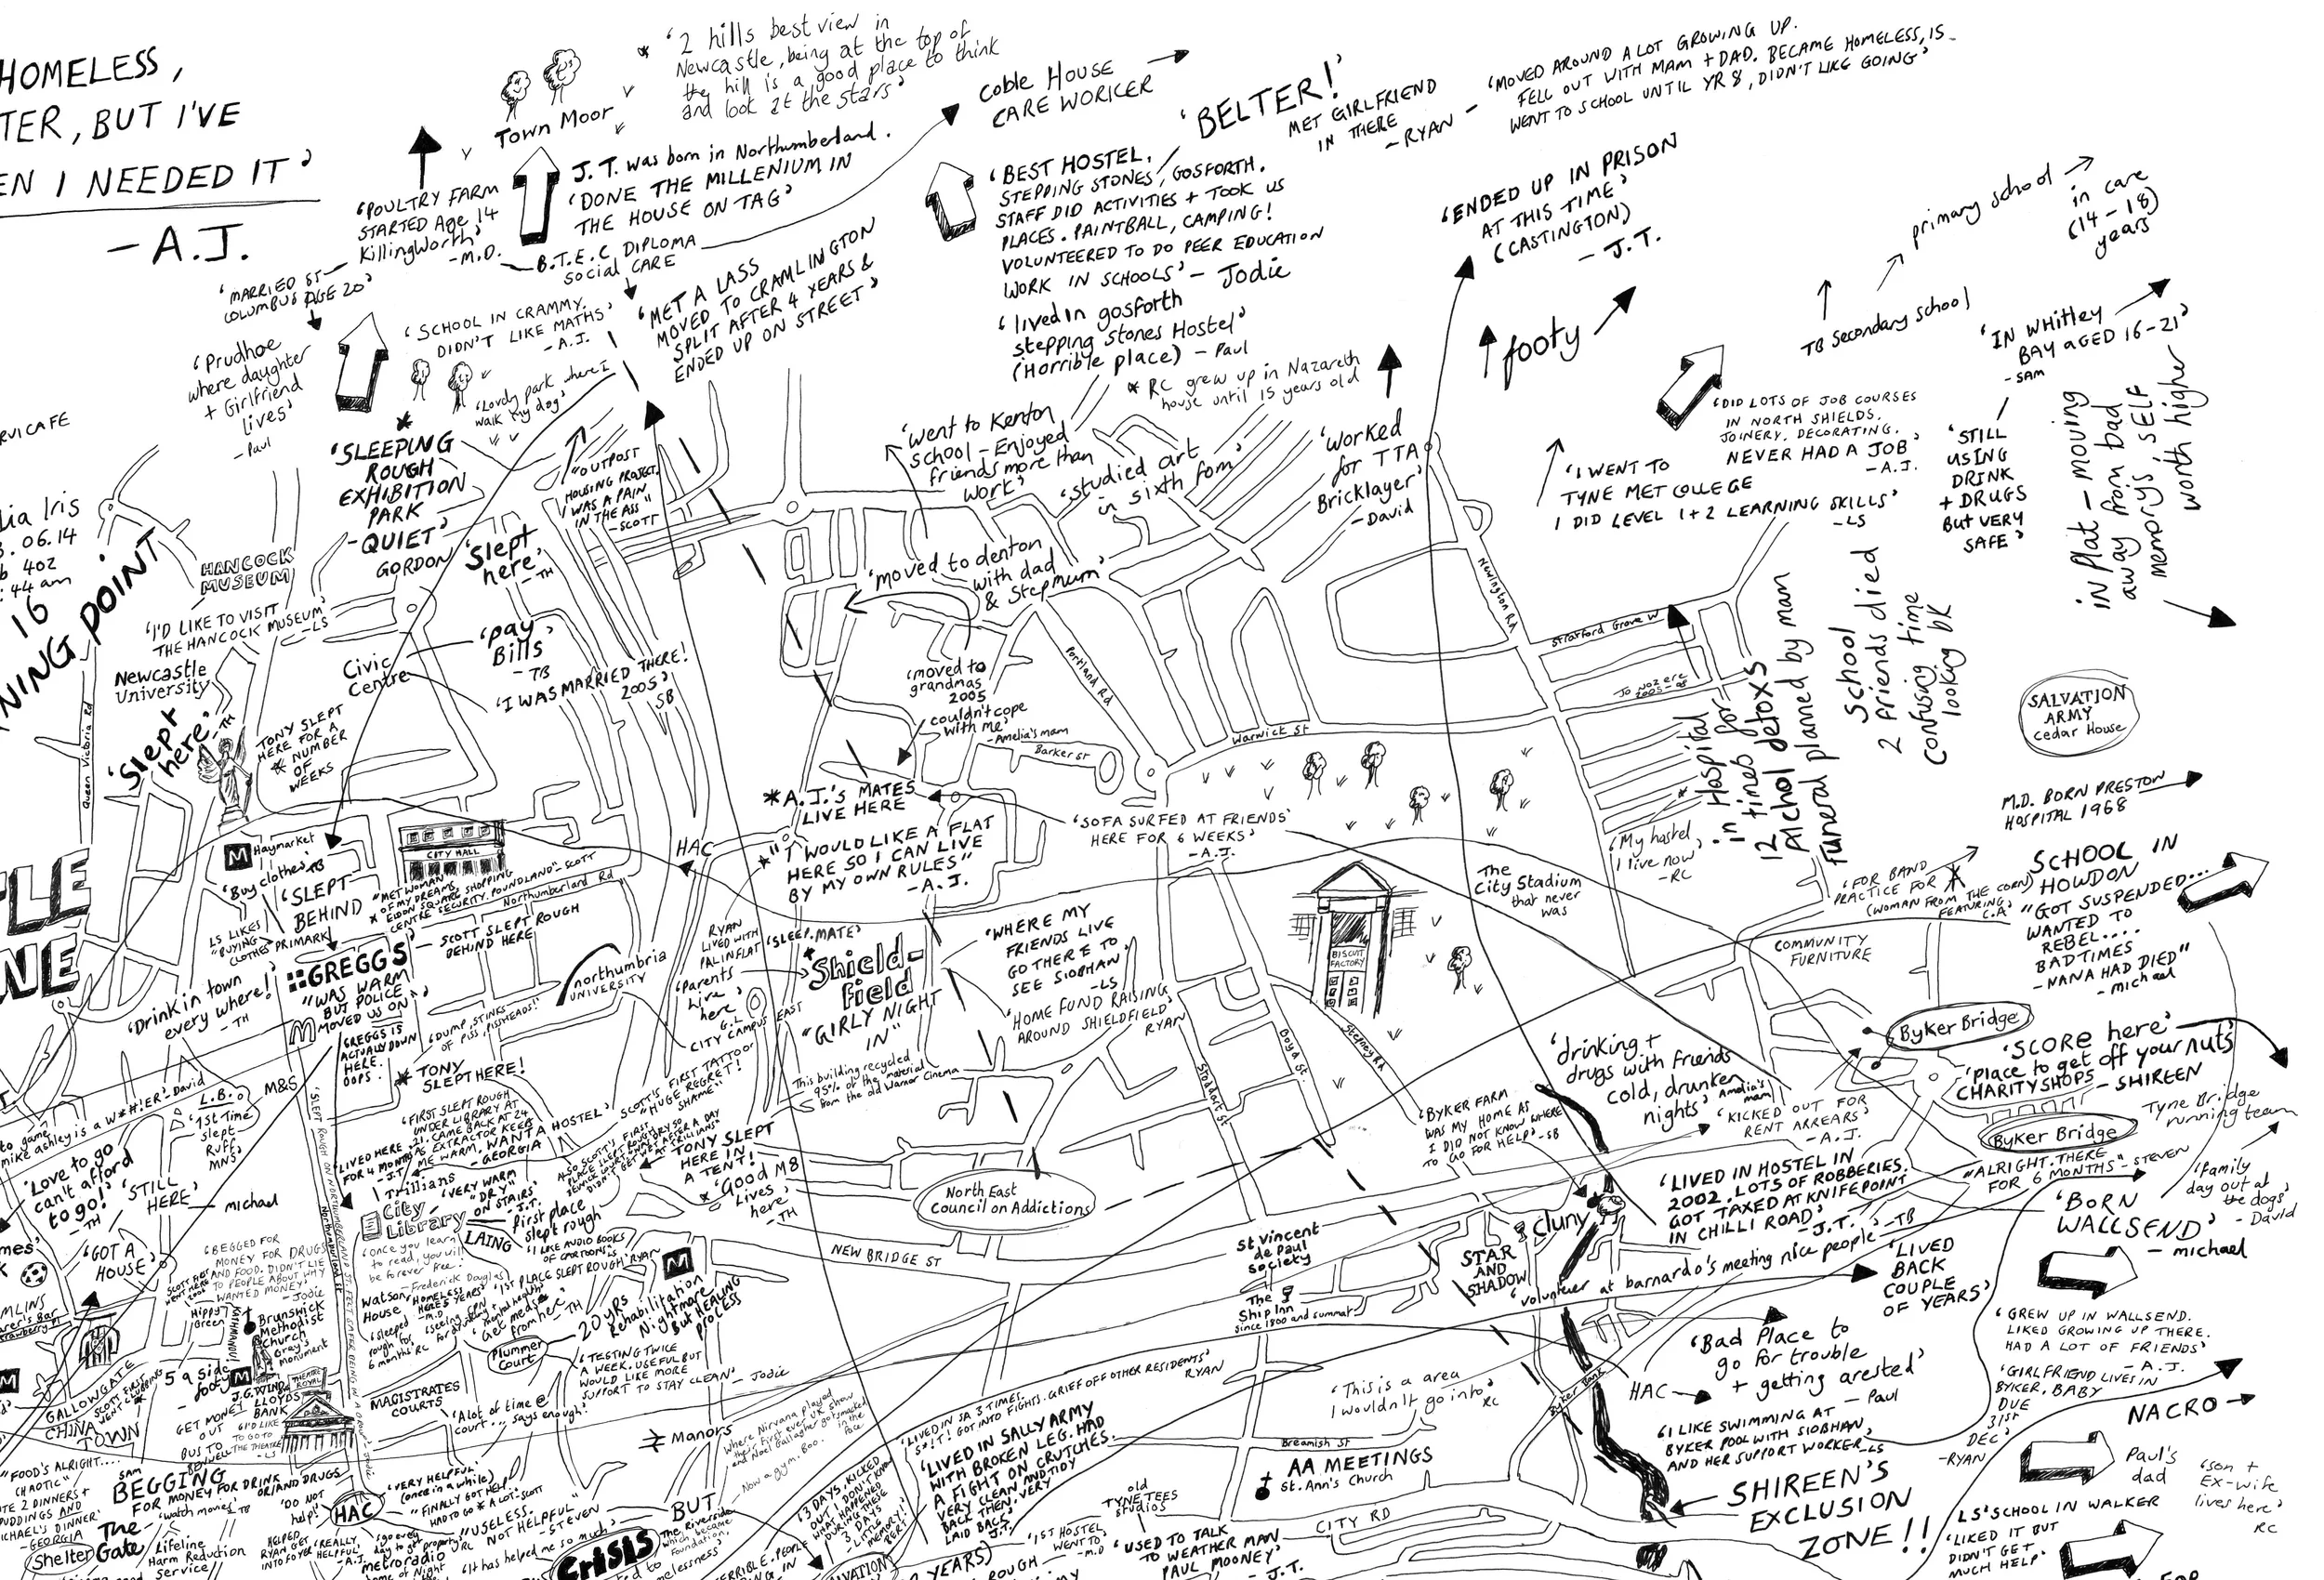 HOMELESS,
TER, BUT I'VE
EN I NEEDED IT'
– A.J.
'2 hills best view in
Newcastle, being at the top of
the hill is a good place to think
and look at the stars'
Town Moor
Coble House
CARE WORKER
'BELTER!'
MET GIRLFRIEND
IN THERE
– RYAN –
'MOVED AROUND A LOT GROWING UP.
FELL OUT WITH MAM + DAD. BECAME HOMELESS, IS
WENT TO SCHOOL UNTIL YR 8, DIDN'T LIKE GOING'
J.T. was born in Northumberland.
'DONE THE MILLENIUM IN
THE HOUSE ON TAG'
'POULTRY FARM
STARTED Age 14
Killingworth'
– M.D.
B.T.E.C DIPLOMA
SOCIAL CARE
'MARRIED ST
COLUMBUS AGE 20'
'BEST HOSTEL.
STEPPING STONES, GOSFORTH.
STAFF DID ACTIVITIES + TOOK US
PLACES. PAINTBALL, CAMPING!
VOLUNTEERED TO DO PEER EDUCATION
WORK IN SCHOOLS' – Jodie
'lived in gosforth
stepping stones Hostel'
(Horrible place) – Paul
'ENDED UP IN PRISON
AT THIS TIME'
(CASTINGTON)
– J.T.
primary school
in care
(14 – 18)
years
TB Secondary school
footy
'IN WHITLEY
BAY AGED 16-21'
– SAM
'SCHOOL IN CRAMMY.
DIDN'T LIKE MATHS'
– A.J.
'MET A LASS
MOVED TO CRAMLINGTON
SPLIT AFTER 4 YEARS &
ENDED UP ON STREET'
'Prudhoe
where daughter
+ Girlfriend
lives'
– Paul
'Lovely park where I
walk my dog'
* RC grew up in Nazareth
house until 15 years old
'SLEEPING
ROUGH
EXHIBITION
PARK
– QUIET'
GORDON
"OUTPOST
HOUSING PROJECT.
WAS A PAIN
IN THE ASS"
– SCOTT
'went to Kenton
school – Enjoyed
friends more than
work'
'studied art
in sixth form'
'Worked
for TTA
Bricklayer'
– David
'DID LOTS OF JOB COURSES
IN NORTH SHIELDS.
JOINERY. DECORATING.
NEVER HAD A JOB'
– A.J.
'I WENT TO
TYNE MET COLLEGE
I DID LEVEL 1+2 LEARNING SKILLS'
– LS
'STILL
USING
DRINK
+ DRUGS
BUT VERY
SAFE'
IN Flat – moving
away from bad
memorys, SELF
worth higher
RVICAFE
lia Iris
.06.14
16
NING POINT
HANCOCK
MUSEUM
'I'D LIKE TO VISIT
THE HANCOCK MUSEUM'
– LS
Newcastle
University
Queen Victoria Rd
'Slept
here'
– TH
'Slept
here'
– TH
Civic
Centre
'pay
Bills'
– TB
'I WAS MARRIED THERE!
2005'
SB
TONY SLEPT
HERE FOR A
* NUMBER
OF
WEEKS
'moved to denton
with dad
& Stepmum'
'moved to
grandmas
2005
couldn't cope
with me'
– Amelia's mam
Portland Rd
Barker St
Warwick St
Newington Rd
Stratford Grove W
in Hospital
12 times for
Alchol detoxs
funeral planned by mam
School
2 friends died
confusing time
looking bk
SALVATION
ARMY
Cedar House
M.D. BORN PRESTON
HOSPITAL 1968
*A.J.'S MATES
LIVE HERE
*"I WOULD LIKE A FLAT
HERE SO I CAN LIVE
BY MY OWN RULES"
– A.J.
'SOFA SURFED AT FRIENDS'
HERE FOR 6 WEEKS'
– A.J.
HAC
'My hostel
I live now'
– RC
The
City Stadium
that never
was
Haymarket
'Buy clothes' TB
CITY HALL
'SLEPT
BEHIND
"MET WOMAN
* OF MY DREAMS
ELDON SQUARE SHOPPING
CENTRE SECURITY. POUNDLAND" – SCOTT
Northumberland Rd
LS LIKES
"BUYING
CLOTHES" PRIMARK
SCOTT SLEPT ROUGH
BEHIND HERE
GREGGS'
"WAS WARM
BUT POLICE
MOVED US ON"
'GREGGS IS
ACTUALLY DOWN
HERE.
OOPS.'
'Drink in town
every where!'
– TH
northumbria
UNIVERSITY
RYAN
LIVED WITH
PAL IN FLAT
'SLEEP. MATE'
'Parents
live
here'
G.L
CITY CAMPUS EAST
Shield-
field
"GIRLY NIGHT
IN"
'WHERE MY
FRIENDS LIVE
GO THERE TO
SEE SIOBHAN'
– LS
'HOME FUND RAISING
AROUND SHIELDFIELD'
RYAN
This building recycled
95% of the material
from the old Warner Cinema
BISCUIT
FACTORY
Stepney Rd
Boyd St.
Stoddart St
'FOR BAND
PRACTICE FOR
(WOMAN FROM THE CORN)
FEATURING
C.A'
COMMUNITY
FURNITURE
SCHOOL IN
HOWDON
"GOT SUSPENDED...
WANTED TO
REBEL....
BAD TIMES
– NANA HAD DIED"
– michael
Byker Bridge
'SCORE here'
'place to get off your nuts'
CHARITY SHOPS – SHIREEN
Byker Bridge
'drinking +
drugs with friends
cold, drunken
nights' Amelia's
mam
'KICKED OUT FOR
RENT ARREARS'
– A.J.
'BYKER FARM
WAS MY HOME AS
I DID NOT KNOW WHERE
TO GO FOR HELP' – SB
'LIVED IN HOSTEL IN
2002. LOTS OF ROBBERIES.
GOT TAXED AT KNIFEPOINT
IN CHILLI ROAD' – J.T.
"ALRIGHT. THERE
FOR 6 MONTHS" – STEVEN
Tyne Bridge
running team
'family
day out at
the dogs'
– David
'BORN
WALLSEND'
– michael
'volunteer at barnardo's meeting nice people' – TB
'LIVED
BACK
COUPLE
OF YEARS'
Cluny
STAR
AND
SHADOW
St. Vincent
de Paul
Society
The
Ship Inn
Since 1800 and summat
North East
Council on Addictions
NEW BRIDGE ST
'DUMP, STINKS
OF PISS, PISHEADS!'
* TONY
SLEPT HERE!
'SCOTT'S FIRST TATTOO
"HUGE REGRET!
SHAME"
* TONY SLEPT
HERE IN
A TENT!
'Good M8
lives
here'
– TH
M&S
L.B.
'1st Time
slept
Ruff'
MNS
mike ashley is a W*#!ER' – David
'Love to go
can't afford
to go!'
– TH
'STILL
HERE' – michael
'GOT A
HOUSE'
'FIRST SLEPT ROUGH
UNDER LIBRARY AT
21. CAME BACK AT 24
AS EXTRACTOR KEEPS
ME WARM. WANT A HOSTEL'
– GEORGIA
'LIVED HERE
FOR 4 MONTHS'
– J.T.
Trillians
City
Library
"VERY WARM
"DRY"
ON STAIRS'
– J.T.
LAING
first place
slept rough
'I LIKE AUDIO BOOKS
OF CARTOONS'
'1ST PLACE SLEPT ROUGH' RYAN
'Once you learn
to read, you will
be forever free'
– Frederick Douglas
Watson
House
'BEGGED FOR
MONEY FOR DRUGS
AND FOOD. DIDN'T LIE
TO PEOPLE ABOUT WHY
WANTED MONEY'
– Jodie
Hippy
Green
Brunswick
Methodist
Church
Gray's
Monument
Northumberland St
'sleeped
rough for
6 months' RC
Plummer
Court
Get meds
from here'
– TH
20 yrs
Rehabilitation
Nightmare
But healing
process
'TESTING TWICE
A WEEK. USEFUL BUT
WOULD LIKE MORE
SUPPORT TO STAY CLEAN' – Jodie
MAGISTRATES
COURTS
'A lot of time @
court... says enough!'
5 a side
footy
GALLOWGATE
CHINA
TOWN
GET MONEY
OUT
BUS TO
BENWELL
LLOYDS
BANK
THEATRE
ROYAL
'I'D LIKE
TO GO TO
THE THEATRE'
– LS
Manors
Where Nirvana played
their first ever UK show
and Noel Gallagher got smacked
in the
face.
Now a gym. Boo.
'LIVED IN SA 3 TIMES.
S*!T! GOT INTO FIGHTS. GRIEF OFF OTHER RESIDENTS'
RYAN
'LIVED IN SALLY ARMY
WITH BROKEN LEG. HAD
A FIGHT ON CRUTCHES.
VERY CLEAN AND TIDY
BACK THEN. VERY
LAID BACK'
J.T.
'This is a area
I wouldn't go into'
RC
Breamish St
AA MEETINGS
St. Ann's Church
CITY RD
Byker Bank
'Bad Place to
go for trouble
+ getting arested'
– Paul
HAC
'I LIKE SWIMMING AT
BYKER POOL WITH SIOBHAN
AND HER SUPPORT WORKER – LS
SHIREEN'S
EXCLUSION
ZONE!!
'GREW UP IN WALLSEND.
LIKED GROWING UP THERE.
HAD A LOT OF FRIENDS'
– A.J.
'GIRLFRIEND LIVES IN
BYKER, BABY
DUE
31st
DEC'
– RYAN
NACRO
Paul's
dad
'son +
Ex-wife
lives here'
RC
LS' SCHOOL IN WALKER
'LIKED IT BUT
DIDN'T GET
MUCH HELP'
"FOOD'S ALRIGHT....
CHAOTIC"
SAM
BEGGING
FOR MONEY FOR DRINK
OR/AND DRUGS
'watch movies'
The
Gate
Shelter
Lifeline
Harm Reduction
Service
'DO NOT
help!'
HAC
'VERY HELPFUL
(once in a while)
"FINALLY GOT HELP
HAD TO GO * A LOT – SCOTT
"USELESS.
NOT HELPFUL"
– STEVEN
metro radio
'It has helped me so much'
Crisis
BUT
The Riverside
which became
Foundation.
'3 DAYS. KICKED
OUT. I DON'T KNOW
WHAT HAPPENED
DURING THESE
3 DAYS
LITTLE
MEMORY'
old
TYNE TEES
Studios
'1ST HOSTEL
WENT TO'
– M.D
'USED TO TALK
TO WEATHER MAN
PAUL MOONEY'
– J.T.